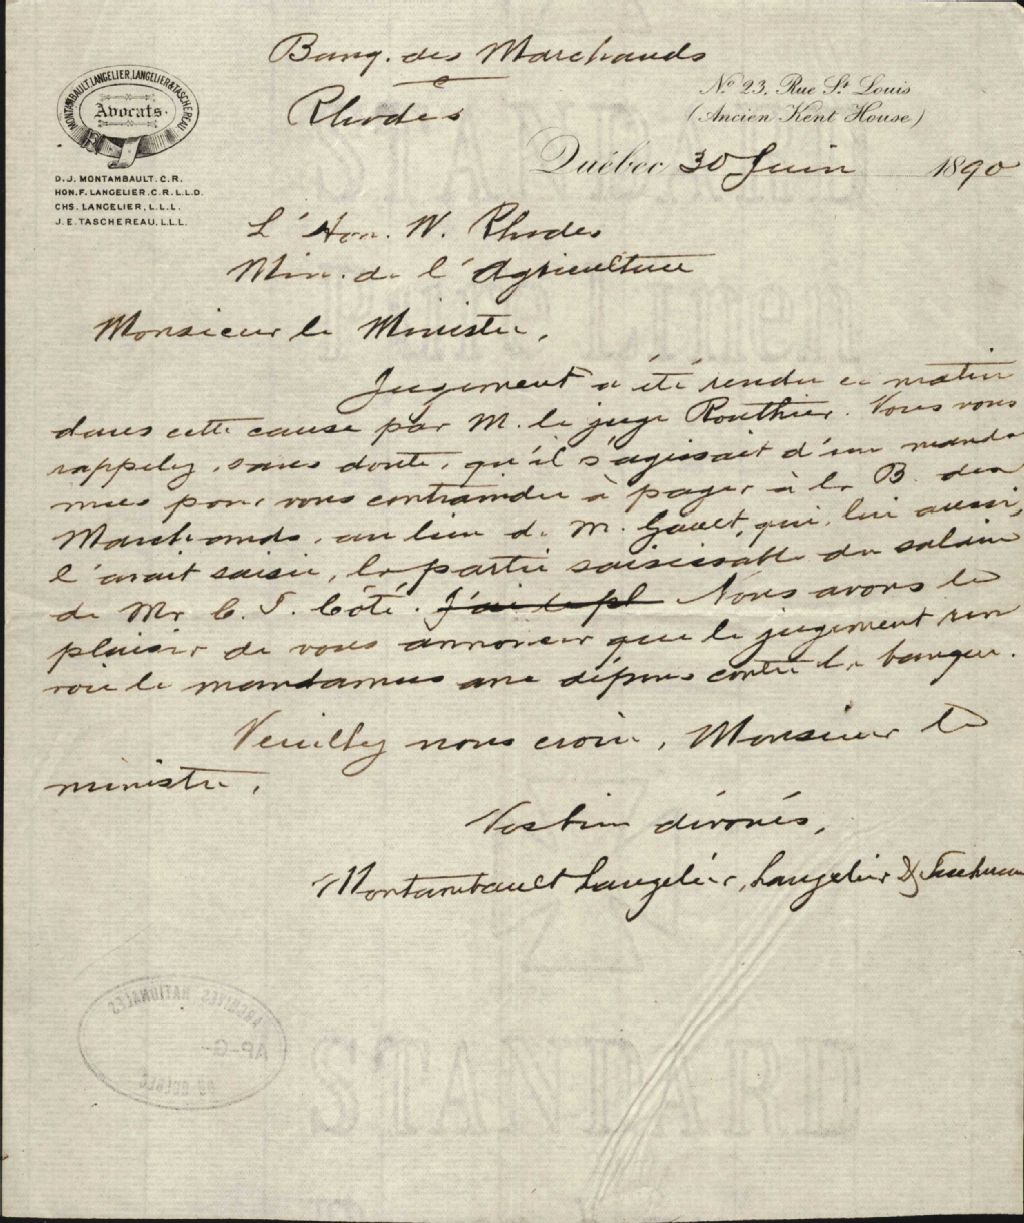 Banq. des Marchands
c
Rhodes
MONTAMBAULT, LANGELIER, LANGELIER & TASCHEREAU
Avocats.
D. J. MONTAMBAULT. C. R.
HON. F. LANGELIER, C. R. L. L. D.
CHS. LANGELIER, L. L. L.
J. E. TASCHEREAU, L. L. L.
No 23, Rue St Louis
(Ancien Kent House)
Québec, 30 Juin 1890
L'Hon. W. Rhodes
Min. de l'Agriculture
Monsieur le Ministre,
Jugement a été rendu ce matin
dans cette cause par M. le juge Routhier. Vous vous
rappelez, sans doute, qu'il s'agissait d'un manda-
mus pour vous contraindre à payer à la B. des
Marchands, au lieu de M. Gault, qui, lui aussi,
l'avait saisie, la partie saisissable du salaire
de Mr C. T. Côté. J'ai le pl Nous avons le
plaisir de vous annoncer que le jugement ren
voie le mandamus avec dépens contre la banque.
Veuillez nous croire, Monsieur le
ministre,
Vos bien dévoués,
Montambault Langelier, Langelier & Taschereau
ARCHIVES NATIONALES
AP-G-
DU QUÉBEC
STANDARD
Pure Linen
STANDARD